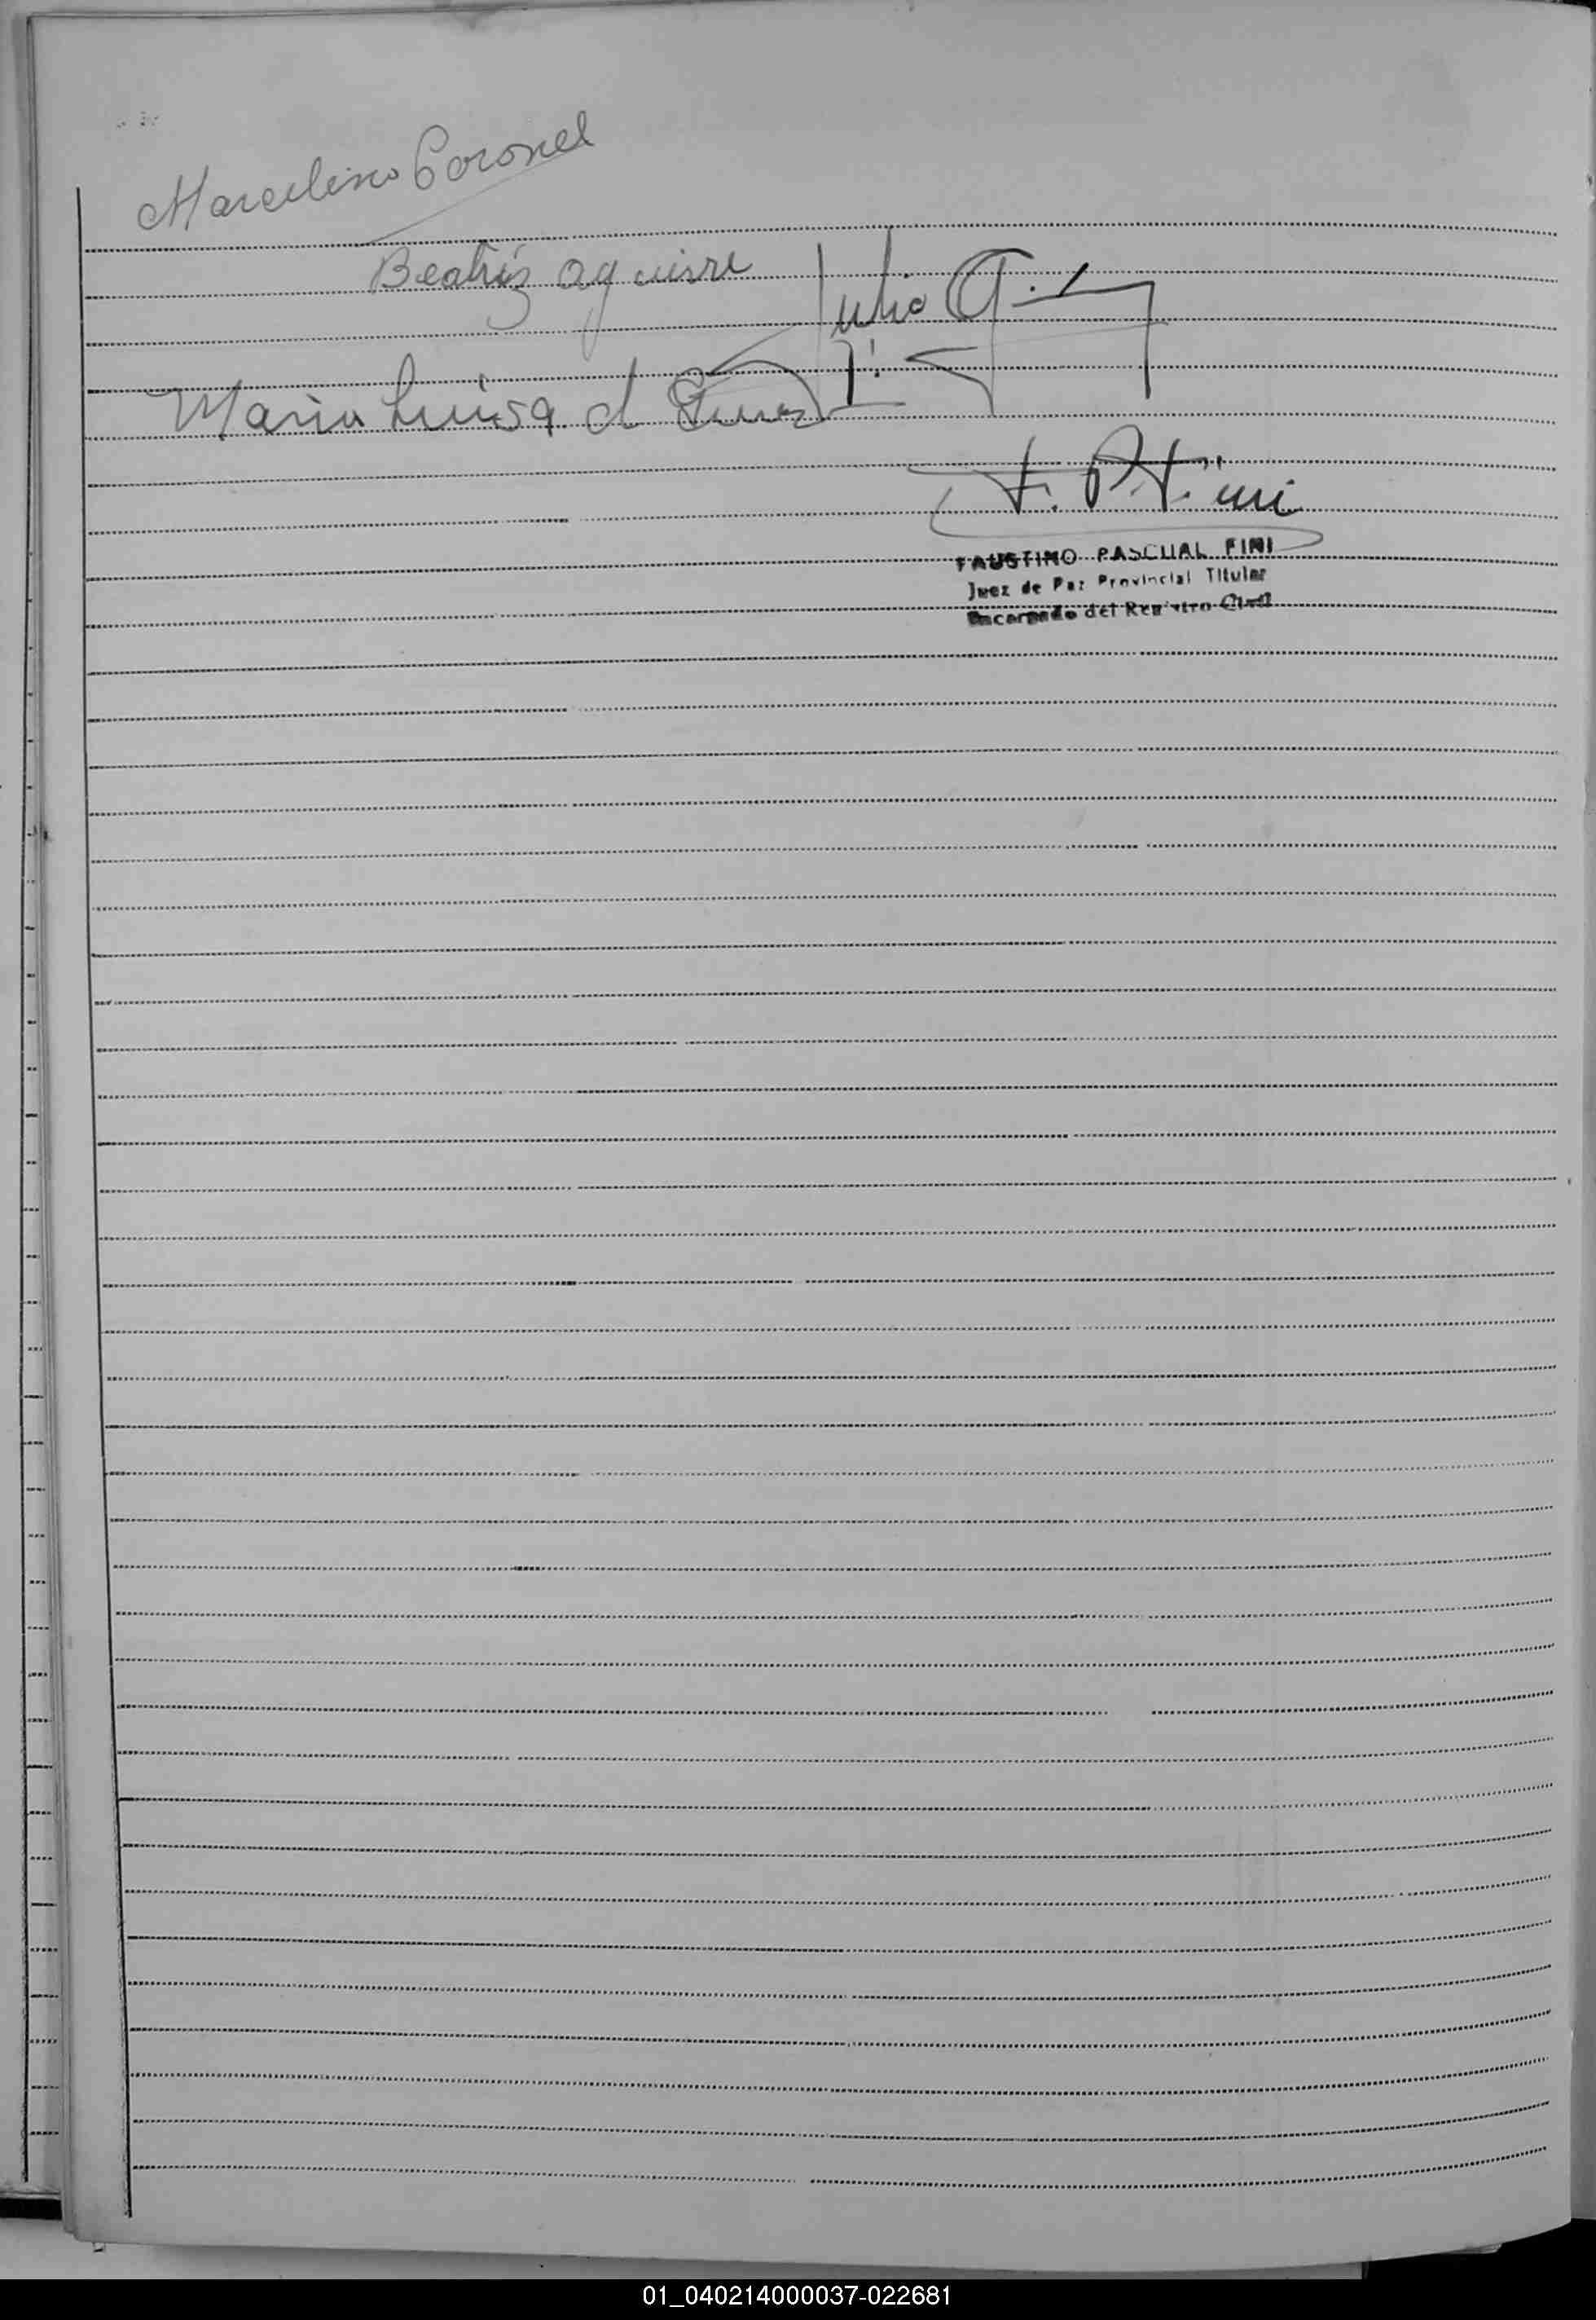 Marcelino Coronel
Beatriz aguirre
Julio
Maria Luisa d
F. P. Fini
FAUSTINO PASCUAL FINI
Juez de Paz Provincial Titular
Encargado del Registro Civil
01_040214000037-022681